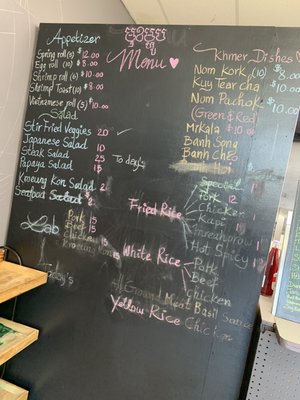 Appetizer
Spring roll (5) $12.00
Egg roll (10) $8.00
Shrimp roll (5) $10.00
Shrimp Toast (10) $8.00
Vietnamese roll (5) $10.00
Salad
Stir Fried Veggies 20
Japanese Salad 10
Steak Salad 25
Papaya Salad 15
Kroeung Kon Salad 2
Seafood Salad $2
Lab
Pork 15
Beef 15
Chicken
To day's
Menu
Khmer Dishes
Nom Kork (10) $8.00
Kuy Tear cha $10.00
Nom Pachok $10.00
(Green & Red)
Mrkala $10.00
Banh Song
Banh Cheo
Fried Rice
Special
Pork 12
Chicken
Kapi
Hot Spicy
White Rice
Pork
Beef
Chicken
Ground Meat Basil Sauce
Yellow Rice Chicken